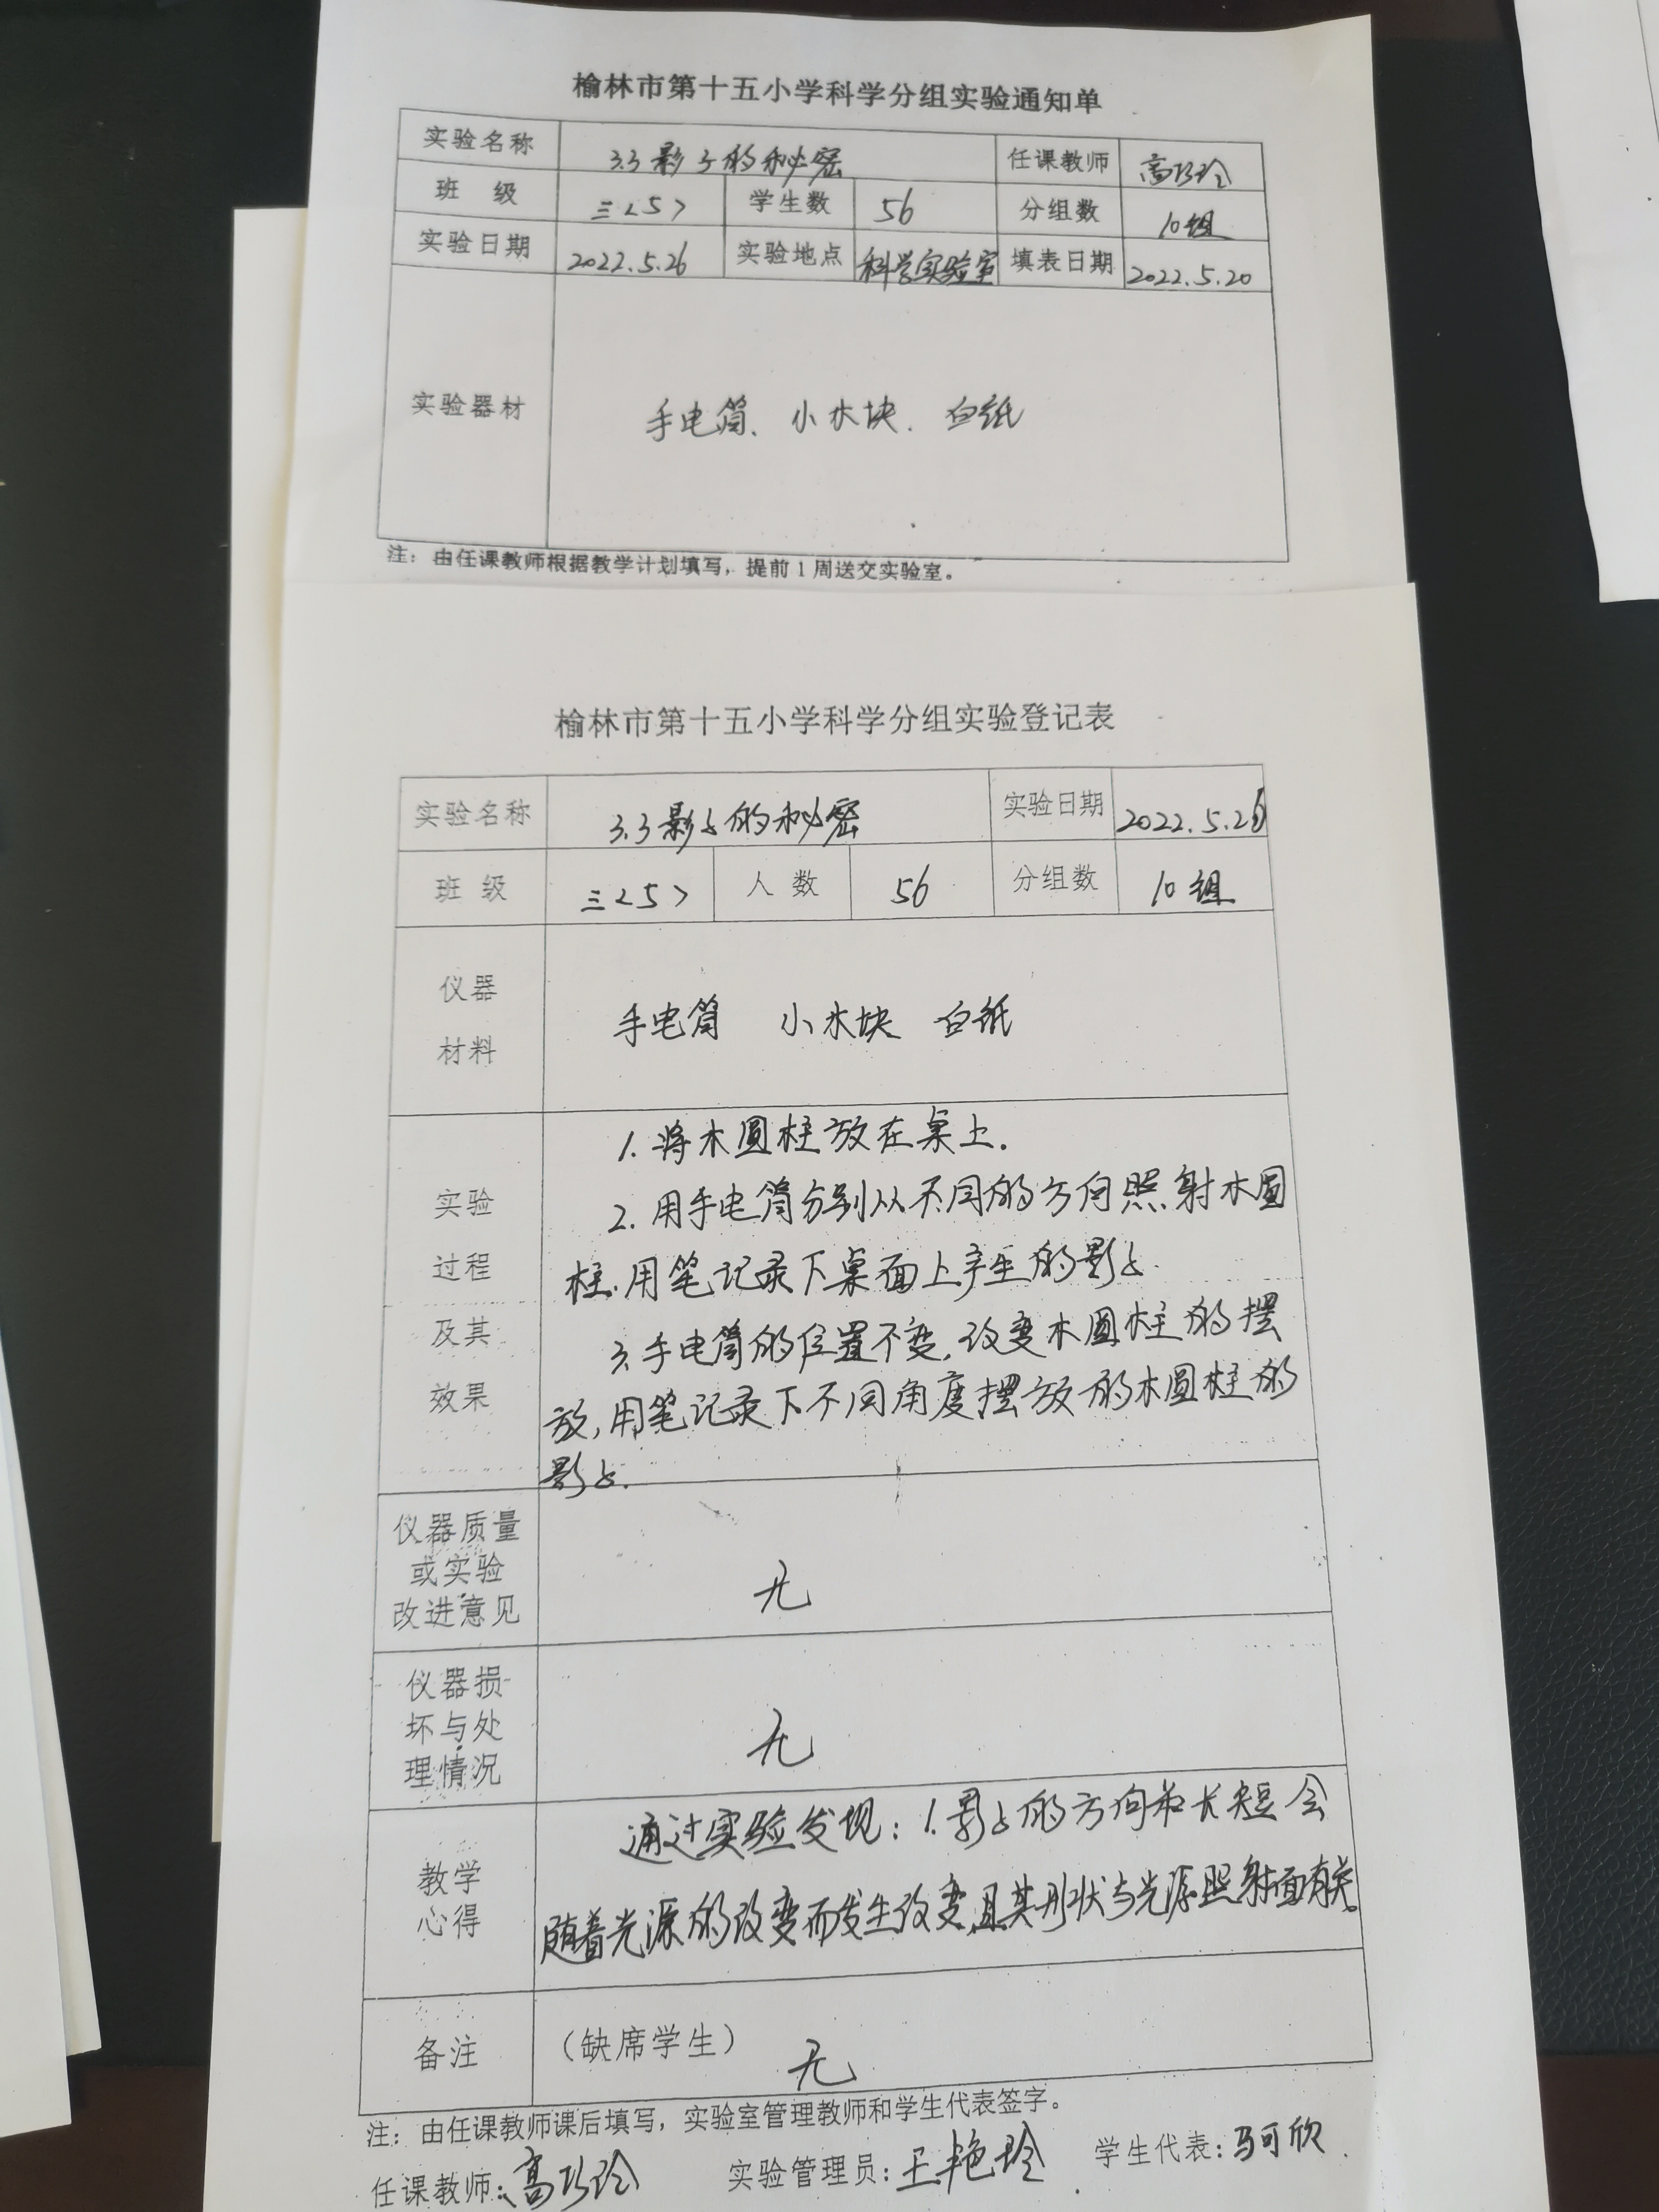 榆林市第十五小学科学分组实验通知单
实验名称 3.3影子的秘密 任课教师 高巧玲
班 级 三<5> 学生数 56 分组数 10组
实验日期 2022.5.26 实验地点 科学实验室 填表日期 2022.5.20
实验器材 手电筒、小木块、白纸
注：由任课教师根据教学计划填写，提前1周送交实验室。
榆林市第十五小学科学分组实验登记表
实验名称 3.3影子的秘密 实验日期 2022.5.26
班 级 三<5> 人 数 56 分组数 10组
仪器
材料
手电筒 小木块 白纸
实验
过程
及其
效果
1.将木圆柱放在桌上.
2.用手电筒分别从不同的方向照射木圆
柱.用笔记录下桌面上产生的影子.
3.手电筒的位置不变,改变木圆柱的摆
放,用笔记录下不同角度摆放的木圆柱的
影子.
仪器质量
或实验
改进意见
无
仪器损
坏与处
理情况
无
教学
心得
通过实验发现:1.影子的方向和长短会
随着光源的改变而发生改变,且其形状与光源照射面有关。
备注 （缺席学生） 无
注：由任课教师课后填写，实验室管理教师和学生代表签字。
任课教师:高巧玲 实验管理员:王艳玲 学生代表:马可欣.